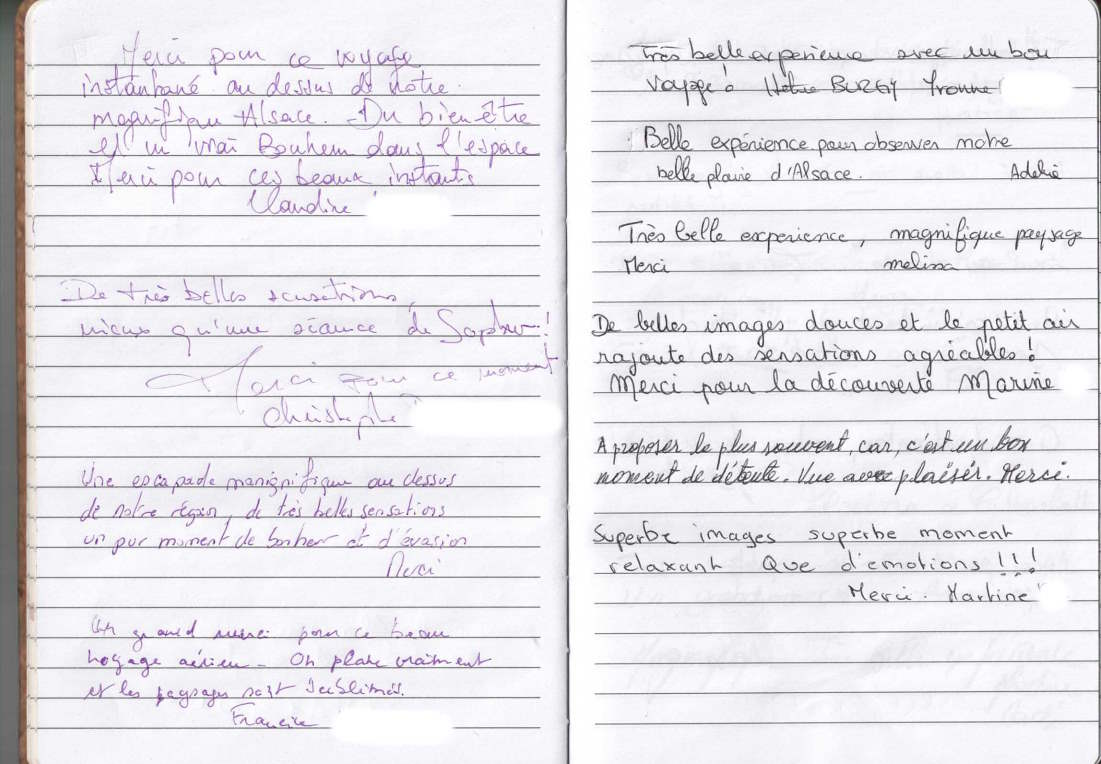 Merci pour ce voyage
instantané au dessus de notre
magnifique Alsace. Du bien être
et un vrai Bonheur dans l'espace
Merci pour ces beaux instants
Claudine
De très belles sensations,
mieux qu'une séance de Sophro !
Merci pour ce moment
Christophe
Une escapade manignifique au dessus
de notre région, de très belles sensations
un pur moment de bonheur et d'évasion
Merci
Un grand merci pour ce beau
voyage aérien - On plane vraiment
et les paysages sont sublimes.
Francine
Très belle experience avec un bon
voyage ! BURGY Yvonne
Belle expérience pour observer notre
belle plaine d'Alsace. Adélie
Très belle experience, magnifique paysage
Merci melissa
De belles images douces et le petit air
rajoute des sensations agréables !
Merci pour la découverte Marine
A proposer le plus souvent, car, c'est un bon
moment de détente. Vue avec plaisir. Merci.
Superbe images superbe moment
relaxant Que d'emotions !!!
Merci. Martine